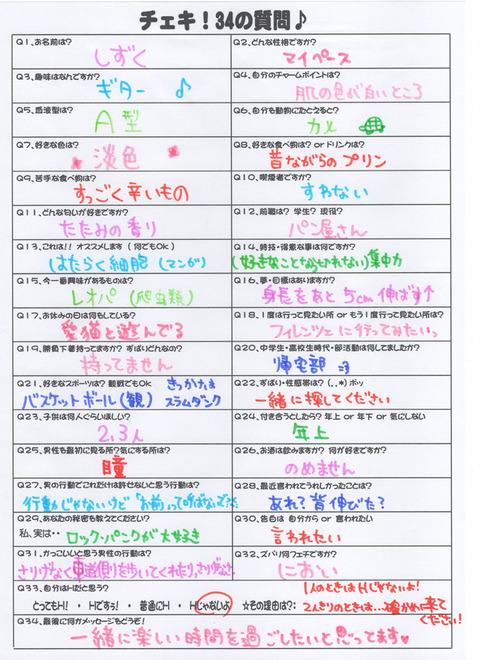 チェキ！34の質問♪
Q1、お名前は？
しずく
Q2、どんな性格ですか？
マイペース
Q3、趣味はなんですか？
ギター ♪
Q4、自分のチャームポイントは？
肌の色が白いところ
Q5、血液型は？
A型
Q6、自分を動物にたとえると？
カメ
Q7、好きな色は？
淡色
Q8、好きな食べ物は？ or ドリンクは？
昔ながらのプリン
Q9、苦手な食べ物は？
すっごく辛いもの
Q10、喫煙者ですか？
すわない
Q11、どんな匂いが好きですか？
たたみの香り
Q12、前職は？ 学生？ 現役？
パン屋さん
Q13、これは!! オススメします （何でもOk）
はたらく細胞（マンガ）
Q14、特技・得意な事は何ですか？
（好きなことなら切れない）集中力
Q15、今一番興味があるものは？
レオパ（爬虫類）
Q16、夢・目標はありますか？
身長をあと5cm伸ばす↑
Q17、お休みの日は何もしている？
愛猫と遊んでる
Q18、1度は行って見たい所 or もう1度行って見たい所は？
フィレンツェに行ってみたいっ
Q19、勝負下着持ってますか？ ずばいどんなの？
持ってません
Q20、中学生・高校生時代・部活動は何してましたか？
帰宅部
Q21、好きなスポーツは？ 観戦でもOk
きっかけは
バスケットボール（観） スラムダンク
Q22、ずばい・性感帯は？（．.*）ポッ
一緒に探してください
Q23、子供は何人ぐらいほしい？
2，3人
Q24、付き合うとしたら？ 年上 or 年下 or 気にしない
年上
Q25、男性を最初に見る所？気にする所は？
瞳
Q26、お酒は飲みますか？ 何が好きですか？
のめません
Q27、男の行動でこれだけは許せないと思う行動は？
行動じゃないけど「お前」って呼ばないで
Q28、最近言われてうれしかったことは？
あれ？背伸びた？
Q29、あなたの秘密を教えてください？
私、実は・・ ロック・パンクが大好き
Q30、告白は 自分から or 言われたい
言われたい
Q31、かっこいいと思う男性の行動は？
さりげなく車道側を歩いてくれたり、さりげなさ
Q32、ズバリ何フェチですか？
におい
Q33、自分はHだと思う？
とってもH！ ・ Hですぅ！ ・ 普通にH ・ Hじゃないよ ☆その理由は？：
1人のときはHじゃないよ！
2人きりのときは...確かめに来て
ください！
Q34、最後に何かメッセージをどうぞ！
一緒に楽しい時間を過ごしたいと思ってます♥